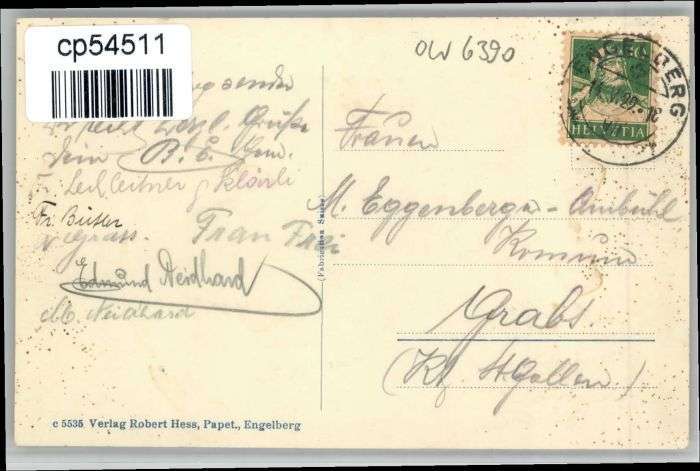 cp54511
OW 6390
ENGELBERG
HELVETIA
sende
herzl. Grüße
Dein B. E.
Fr. Lechleitner Klärli
Fr. Büsser
Grass. Frau Frei
Edmund Neidhard
M. Neidhard
Frauen
M. Eggenberger-Ambühl
Grabs.
(Kt. St. Gallen.)
(Fabrication Suisse)
c 5535 Verlag Robert Hess, Papet., Engelberg